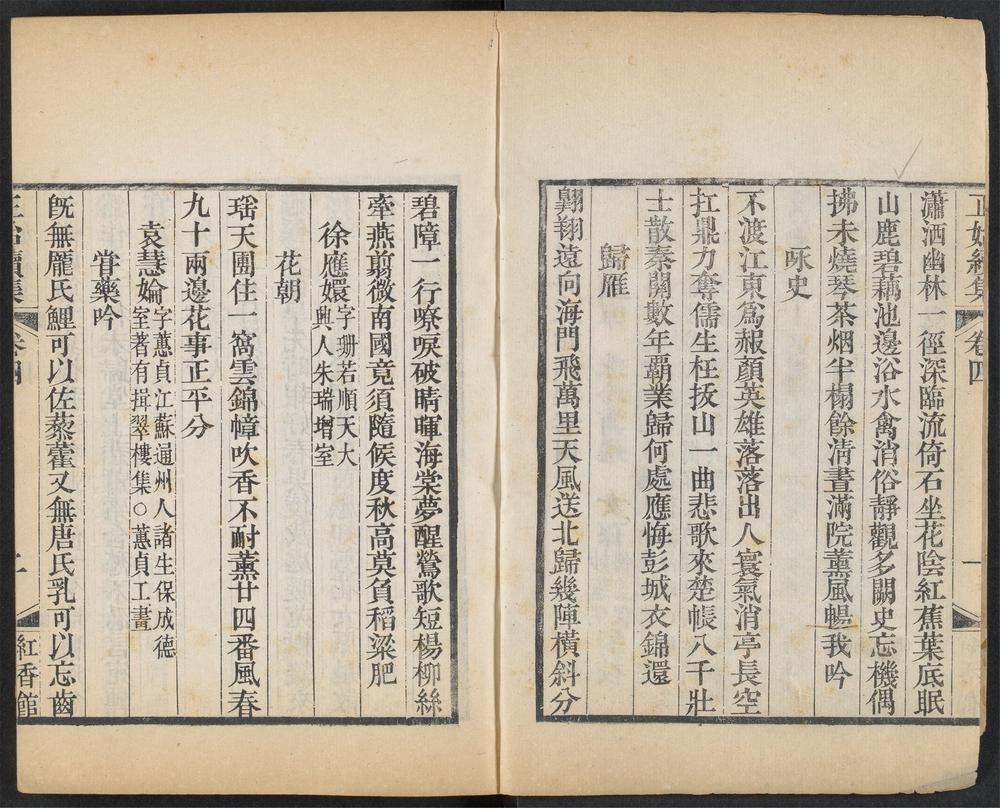 正始續集
卷四
一
瀟洒幽林一徑深臨流倚石坐花陰紅蕉葉底眠
山鹿碧藕池邊浴水禽消俗靜觀多闕史忘機偶
拂未燒琴茶烟半榻餘清晝滿院薰風暢我吟
咏史
不渡江東為赧顏英雄落落出人寰氣消亭長空
扛鼎力奪儒生枉拔山一曲悲歌來楚帳八千壯
士散秦關數年覇業歸何處應悔彭城衣錦還
歸雁
翺翔遠向海門飛萬里天風送北歸幾陣橫斜分
碧嶂一行嘹唳破晴暉海棠夢醒鶯歌短楊柳絲
牽燕翦微南國竟須隨候度秋高莫負稻粱肥
徐應嬽字珊若順天大
興人朱瑞增室
花朝
瑶天團住一窩雲錦幛吹香不耐薰廿四番風春
九十兩邊花事正平分
袁慧婨字蕙貞江蘇通州人諸生保成德
室著有揖翠樓集○蕙貞工畫
甞藥吟
旣無龐氏鯉可以佐藜藿又無唐氏乳可以忘齒
正始續集
卷四
紅香館